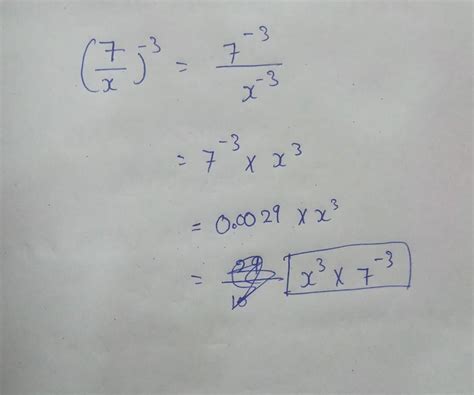 (7/x)^-3 = 7^-3/x^-3
= 7^-3 × x^3
= 0.0029 × x^3
= x^3 × 7^-3